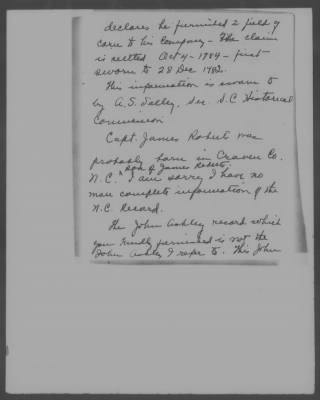 declares he furnished 2 field of
corn to his Company - The claim
is settled Oct 4 - 1784 - first
sworn to 28 Dec 1782.
This information is sworn to
by A. S. Salley, Sec. S.C Historical
Commission
Capt. James Roberts was
probably born in Craven Co.
son of James Roberts.
N.C. I am sorry I have no
more complete information of the
N.C. Record.
The John Ashley record which
you kindly furnished is not the
John Ashley I refer to. This John